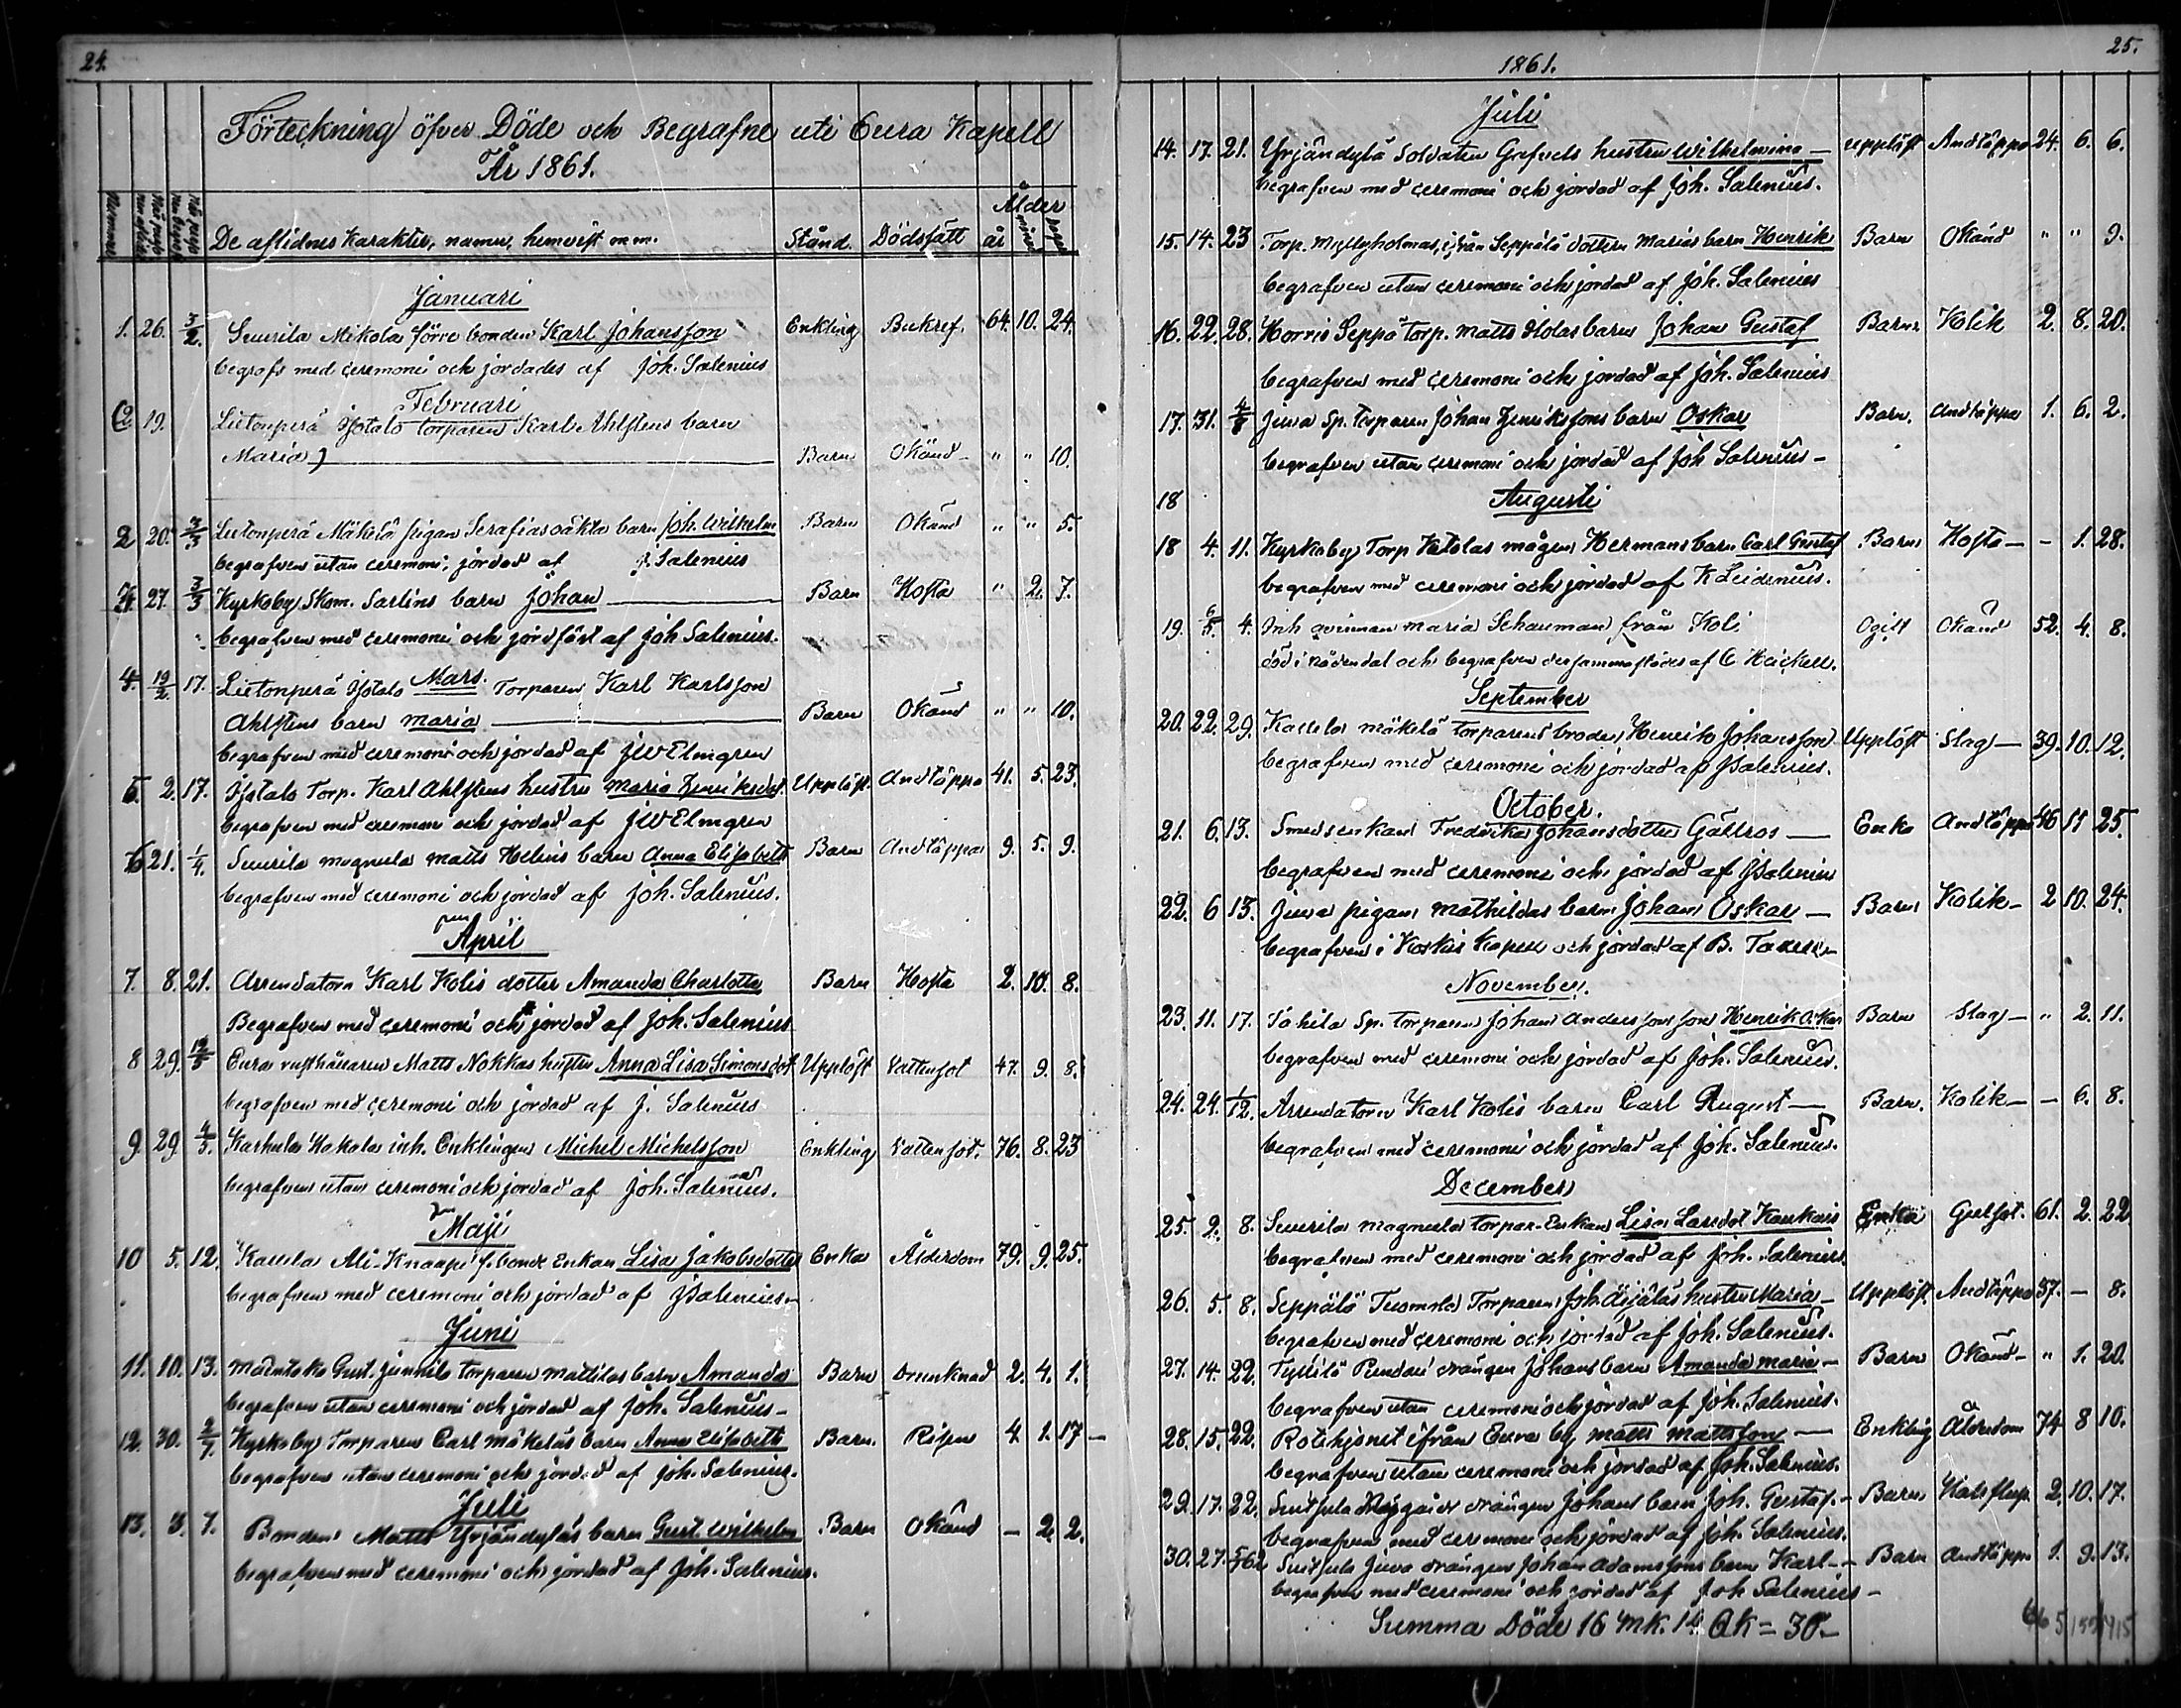 24.
Förteckning öfver Döde och Begrafne uti Eura Kapell
År 1861.
De aflidnes karakter, namn, hemvist m.m. Stånd. Dödssätt Ålder år månad dagar
Januari
1. 26. 3/2. Suurila Mikola förre bonden Karl Johansson Enkling Bukref. 64. 10. 24.
begrofs med ceremoni och jordades af Joh. Salenius
Februari
(2. 19. Lietonperä Isotalo torparen Karl Ahlstens barn
Maria) Barn Okänd " " 10.
2 20. 3/3 Lietonperä Mäkelä pigan Serafias oäkta barn Joh. Wilhelm Barn Okänd " " 5.
begrafven utan ceremoni, jordad af J. Salenius
3. 27. 3/3 Kyrkoby Skom. Sarlins barn Johan Barn Hosta " 2. 7.
begrafven med ceremoni och jordfäst af Joh Salenius.
Mars.
4. 19/2. 17. Lietonperä Isotalo Torparen Karl Karlsson
Ahlstens barn Maria Barn Okänd " " 10.
begrafven med ceremoni och jordad af JWElmgren
5. 2. 17. Isotalo Torp. Karl Ahlstens hustru Maria Henriksdot. Upplöst. Andtäppa 41. 5. 23.
begrafven med ceremoni och jordad af JWElmgren
6 21. 1/4. Suurila magnula Matts Helins barn Anna Elisabeth Barn Andtäppa 9. 5. 9.
begrafven med ceremoni och jordad af Joh. Salenius.
April
7. 8. 21. Arrendatorn Karl Kolis dotter Amanda Charlotta Barn Hosta 2. 10. 8.
Begrafven med ceremoni och jordad af Joh. Salenius
8 29. 12/5 Eura rusthållaren Matts Nokkas hustru Anna Lisa Simonsdot. Upplöst Vattensot 47. 9. 8.
begrafven med ceremoni och jordad af J. Salenius
9. 29 4/5. Karhula Kakola inh. Enklingen Michel Michelsson Enkling Vattensot. 76. 8. 23
begrafven utan ceremoni och jordad af Joh. Salenius.
Maji
10 5. 12. Kauela Ali-Knaapi f. bonde Enkan Lisa Jakobsdotter Enka Ålderdom 79. 9. 25.
begrafven med ceremoni och jordad af JSalenius
Juni
11. 10. 13. Gust. Junnila torparen Mattilas barn Amanda Barn Drunknad 2. 4. 1.
begrafven utan ceremoni och jordad af Joh. Salenius
12. 30. 2/7. Kyrkoby Torparen Carl Mäkeläs barn Anna Elisabeth Barn. Risen 4. 1. 17
begrafven utan ceremoni och jordad af Joh. Salenius.
Juli
13. 3. 7. Bonden Matts Yrjändyläs barn Gust. Wilhelm Barn Okänd — 2. 2.
begrafven med ceremoni och jordad af Joh. Salenius.
25.
1861.
Juli
14. 17. 21. Yrjändylä Soldaten hustru Wilhelmina Upplöst Andtäppa 24. 6. 6.
begrafven med ceremoni och jordad af Joh. Salenius.
15. 14. 23 Torp. ifrån Seppälä dottren Marias barn Henrik Barn Okänd " " 9.
begrafven utan ceremoni och jordad af Joh. Salenius
16. 22. 28. Horris Seppä torp. Matts barn Johan Gustaf Barn Kolik 2. 8. 20.
begrafven med ceremoni och jordad af Joh. Salenius
17. 31. 4/8 Juva Sp. torparen Johan Henrikssons barn Oskar Barn. Andtäppa 1. 6. 2.
begrafven utan ceremoni och jordad af Joh Salenius
18 Augusti
18 4. 11. Kyrkoby Torp Katolas mågen Hermans barn Carl Gustaf Barn Hosta - 1. 28.
begrafven med ceremoni och jordad af K Leidenius.
19. 6/5. 4. Inh qvinnan Maria Schauman från Koli Ogift Okänd 52. 4. 8.
död i Nådendal och begrafven dersammastädes af C Heickell.
September
20. 22. 29. Kauela Mäkelä torparens broder Henrik Johansson Upplöst Slag 39. 10. 12.
begrafven med ceremoni och jordad af JSalenius.
October.
21. 6. 13. Smedsenkan Fredrika Johansdotter Gällros Enka Andtäppa 46 11 25.
begrafven med ceremoni och jordad af JSalenius
22. 6 13. Juva pigans Mathildas barn Johan Oskar Barn Kolik 2 10. 24.
begrafven i Koskis Kapell och jordad af B.
November.
23. 11. 17. Tahila Sp. torparen Johan Anderssons son Henrik Oskar Barn Slag " 2. 11.
begrafven med ceremoni och jordad af Joh. Salenius.
24. 24. 1/12. Arrendatorn Karl Kolis barn Carl August Barn. Kolik - 6. 8.
begrafven med ceremoni och jordad af Joh. Salenius.
December
25. 2. 8. Suurila magnula torpar-Enkan Lisa Larsdot Kaukais Enka Gulsot. 61. 2. 22
begrafven med ceremoni och jordad af Joh. Salenius.
26. 5. 8. Seppälä Tuomola Torparen Joh. Äijäläs hustru Maria Upplöst. Andtäppa 57. — 8.
begrafven med ceremoni och jordad af Joh. Salenius.
27. 14. 22. drängen Johans barn Amanda Maria Barn Okänd " 1. 20.
begrafven utan ceremoni och jordad af Joh. Salenius.
28. 15. 22. Rotehjonet ifrån Eura by Matts Mattsson Enkling Ålderdom 74 8 10.
begrafven utan ceremoni och jordad af Joh. Salenius.
29. 17. 22. Suitsula drängen Johans barn Joh. Gustaf. Barn Halsfluss 2. 10. 17.
begrafven med ceremoni och jordad af Joh. Salenius.
30. 27. Suitsula Juva drängen Johan Adamssons barn Karl Barn Andtäppa 1. 9. 13.
begrafven med ceremoni och jordad af Joh Salenius
Summa Döde 16 Mk. 14 Qk = 30